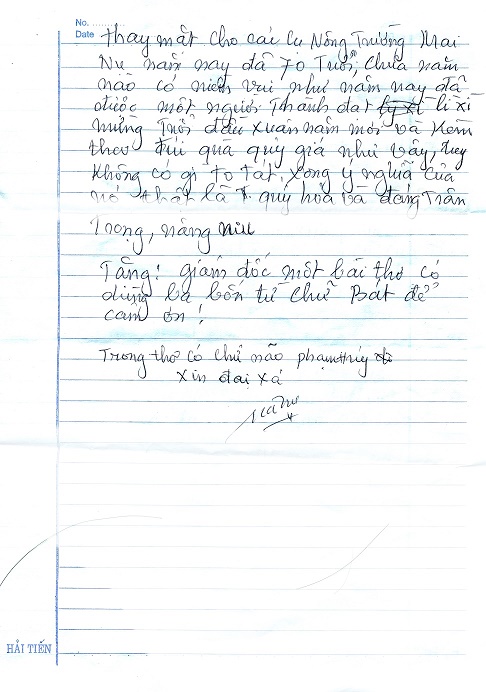 No. ............
Date ............
Thay mặt cho các Cụ Nông Trường Mai
Nụ năm nay đã 70 Tuổi, Chưa năm
nào có niềm vui như năm nay đã
được một người Thành đạt lì xì
mừng Tuổi đầu Xuân năm mới và Kèm
theo túi quà quý giá như vậy, tuy
Không có gì to tát, Xong ý nghĩa của
nó thật là quý hóa và đáng Trân
Trọng, nâng niu
Tặng! giám đốc một bài thơ có
dùng ba bốn từ chữ Bát để
cảm ơn!
Trong thơ có chữ nào phạm húy
Xin đại xá
HẢI TIẾN